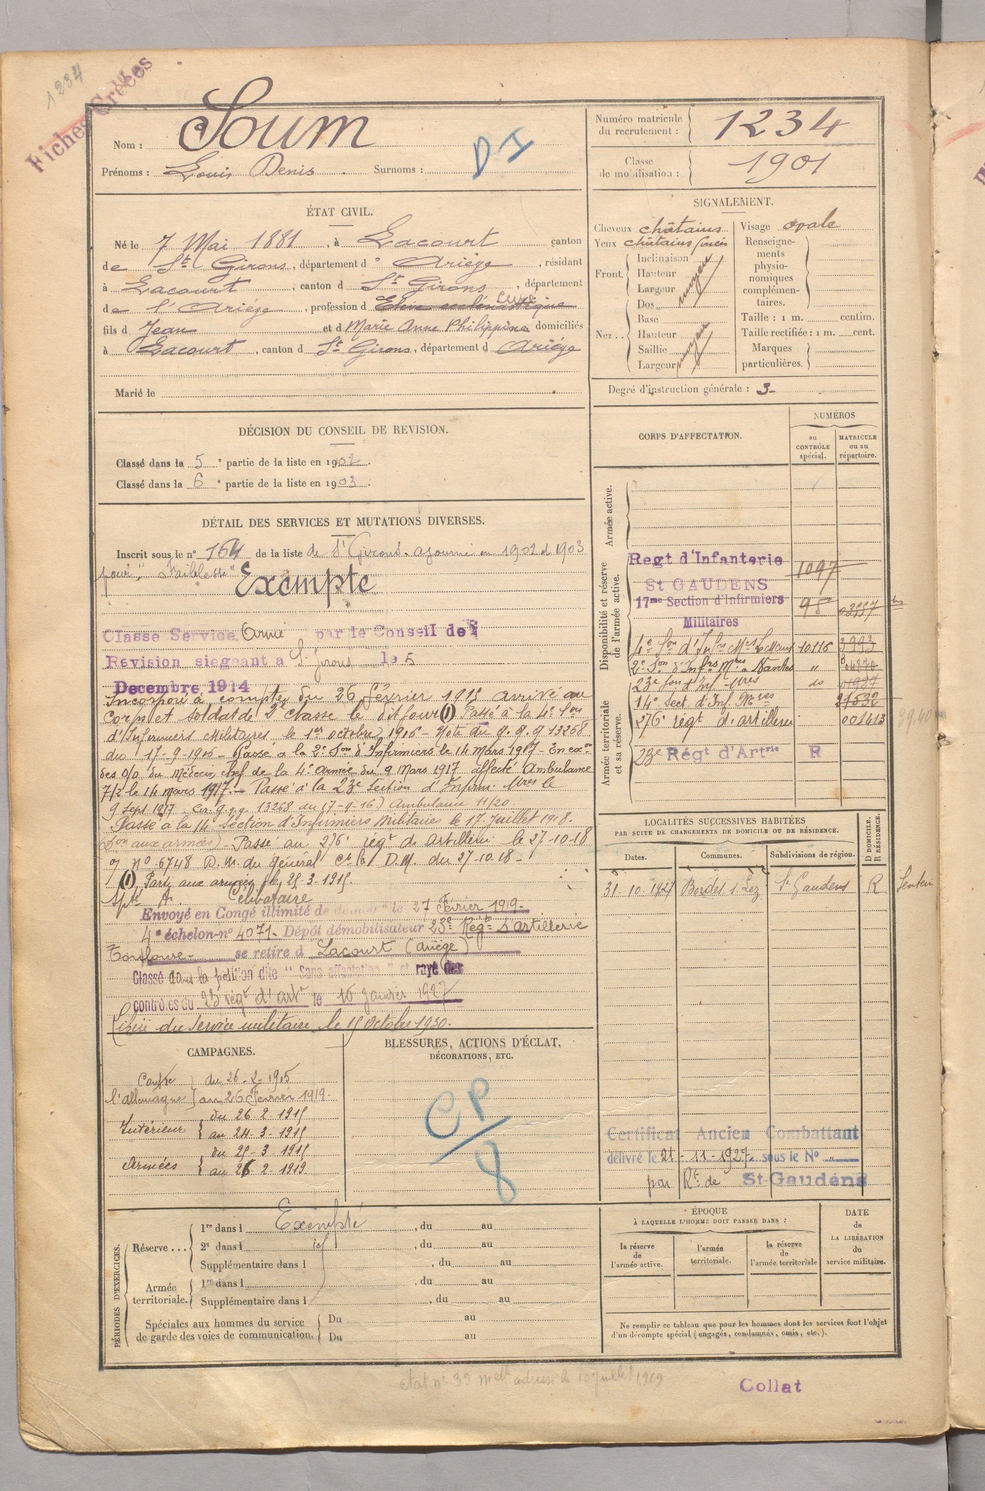 1234
Fiches Créées
Nom : Soum
Prénoms : Louis Denis . Surnoms :
DI
Numéro matricule
du recrutement : 1234
Classe
de mobilisation : 1901
ÉTAT CIVIL.
Né le 7 Mai 1881, à Lacourt canton
de St Girons, département d Ariège, résidant
à Lacourt, canton d St Girons, département
de l'Ariége, profession d Elève ecclésiastique
fils d Jean et d Marie Anne Philippine domiciliés
à Lacourt, canton d St Girons, département d Ariége
Marié le
SIGNALEMENT.
Cheveux châtains
Yeux châtains foncés
Front. Inclinaison
Hauteur
Largeur
moyen
Nez .. Dos
Base
Hauteur
Saillie
Largeur
moyen
Visage ovale
Renseigne-
ments
physio-
nomiques
complémen-
taires.
Taille : 1 m. centim.
Taille rectifiée : 1 m. cent.
Marques
particulières.
Degré d'instruction générale : 3
DÉCISION DU CONSEIL DE REVISION.
Classé dans la 5e partie de la liste en 1902.
Classé dans la 6e partie de la liste en 1903.
DÉTAIL DES SERVICES ET MUTATIONS DIVERSES.
Inscrit sous le n° 164 de la liste de St Girons. ajourné en 1902 et 1903
pour "Faiblesse" Exempté
Classé Service Armé par le Conseil de
Revision siegeant à St Girons le 5
Decembre 1914
Incorporé à compter du 26 février 1915 arrivé au
Corps et soldat de 2e classe le dit jour (1) Passé à la 4e Son
d'Infirmiers Militaires le 1er octobre 1916 - Note du G.Q.G 13268
du 17-9-1916 - Passé à la 2e Son d'Infirmiers le 14 Mars 1917 - En exon
des o/o du Médecin Chef de la 4e Armée du 9 Mars 1917 affecté Ambulance
7/2 le 14 mars 1917. - Passé à la 23e Section d'Infirm. Mres le
9 Sept 1917. Cir. G.Q.G. 13268 du 17-9-16) Ambulance 11/20
Passé à la 14e Section d'Infirmiers Militaire le 17 juillet 1918.
(Son aux armées) - Passé au 276e régt de Artillerie le 27-10-18
n° 6748 D.M. du Général D.M. du 27-10-18 -
(1) Parti aux armées le 25-3-1915.
Envoyé en Congé illimité de démob le 27 Février 1919-
4e échelon n° 4071- Dépôt démobilisateur 23e Régt d'artillerie
Toulouse - se retire à Lacourt (Ariège)
Classé dans la position dite "Sans affectation" et rayé des
contrôles du 23 régt d'artie le 16 janvier 1927
Libéré du service militaire le 15 Octobre 1930.
CORPS D'AFFECTATION.
NUMÉROS
au
CONTRÔLE
spécial.
MATRICULE
ou au
répertoire.
Armée active.
Disponibilité et réserve
de l'armée active.
Regt d'Infanterie
St GAUDENS 1097
17me Section d'Infirmiers
Militaires 98
4e Son d'Infrs Mres Le Mans 10116 3993
2e Son d'Infrs Mres Nantes "
23e Son d'Inf Mres
14e Sect. d'Inf Mres
Armée territoriale
et sa réserve.
276e régt d'artillerie 001413
23e Régt d'Artrie R
LOCALITÉS SUCCESSIVES HABITÉES
PAR SUITE DE CHANGEMENTS DE DOMICILE OU DE RÉSIDENCE.
Dates. Communes. Subdivisions de région. D DOMICILE. R RÉSIDENCE.
31-10-1927 Bordes s. Lez St Gaudens R
Certificat Ancien Combattant
délivré le 21-11-1927 sous le N°
par Rt de St-Gaudens
CAMPAGNES.
Contre
l'allemagne
du 26-2-1915
au 26 Février 1919-
Intérieur
du 26-2-1915
au 24-3-1915
Armées
du 25-3-1915
au 26-2-1919
BLESSURES, ACTIONS D'ÉCLAT,
DÉCORATIONS, ETC.
CP
8
PÉRIODES D'EXERCICES.
Réserve... 1re dans l Exempté, du au
2e dans l, du au
Supplémentaire dans l, du au
Armée
territoriale. 1re dans l, du au
Supplémentaire dans l, du au
Spéciales aux hommes du service
de garde des voies de communication. Du au
Du au
ÉPOQUE
À LAQUELLE L'HOMME DOIT PASSER DANS :
la réserve
de
l'armée active.
l'armée
territoriale.
la réserve
de
l'armée territoriale
DATE
de
LA LIBÉRATION
du
service militaire.
Ne remplir ce tableau que pour les hommes dont les services font l'objet
d'un décompte spécial (engagés, condamnés, omis, etc.).
Collat